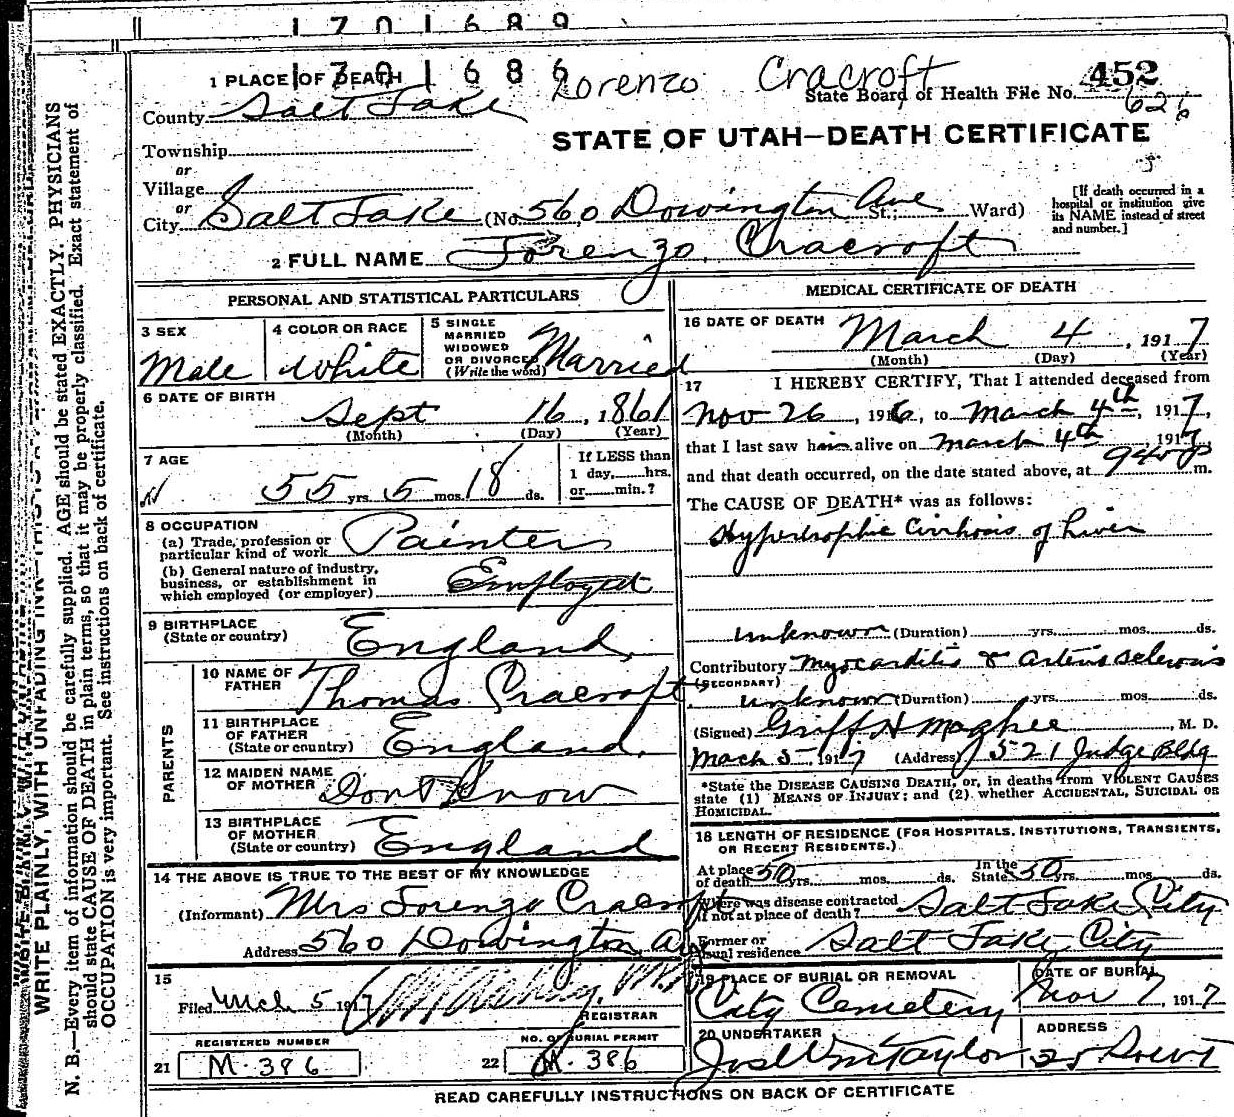 1 7 0 1 6 8 9
1 7 0 1 6 8 6
Lorenzo Cracroft 452
1 PLACE OF DEATH
State Board of Health File No. 626
County Salt Lake
STATE OF UTAH—DEATH CERTIFICATE
Township
or
Village
or
City Salt Lake (No. 560 Dowington Ave St.; Ward)
[If death occurred in a hospital or institution give its NAME instead of street and number.]
2 FULL NAME Lorenzo Cracroft
PERSONAL AND STATISTICAL PARTICULARS
3 SEX Male
4 COLOR OR RACE White
5 SINGLE MARRIED WIDOWED OR DIVORCED (Write the word) Married
6 DATE OF BIRTH Sept 16, 1861
(Month) (Day) (Year)
7 AGE
55 yrs. 5 mos. 18 ds.
If LESS than 1 day, hrs. or min.?
8 OCCUPATION
(a) Trade, profession or particular kind of work Painter
(b) General nature of industry, business, or establishment in which employed (or employer)
9 BIRTHPLACE (State or country) England
PARENTS
10 NAME OF FATHER Thomas Cracroft
11 BIRTHPLACE OF FATHER (State or country) England
12 MAIDEN NAME OF MOTHER Dont Know
13 BIRTHPLACE OF MOTHER (State or country) England
14 THE ABOVE IS TRUE TO THE BEST OF MY KNOWLEDGE
(Informant) Mrs Lorenzo Cracroft
Address 560 Dowington Av
15
Filed Mch 5 1917
REGISTRAR
REGISTERED NUMBER
21 M-386
NO. OF BURIAL PERMIT
22 M-386
MEDICAL CERTIFICATE OF DEATH
16 DATE OF DEATH March 4, 1917
(Month) (Day) (Year)
17 I HEREBY CERTIFY, That I attended deceased from
Nov 26, 1916, to March 4th, 1917,
that I last saw him alive on March 4th, 1917,
and that death occurred, on the date stated above, at 940 P m.
The CAUSE OF DEATH* was as follows:
Hypertrophic Cirrhosis of Liver
unknown (Duration) yrs. mos. ds.
Contributory Myocarditis & Arterio sclerosis
(SECONDARY)
unknown (Duration) yrs. mos. ds.
(Signed) M. D.
March 5, 1917 (Address) 521 Judge Bldg
*State the DISEASE CAUSING DEATH, or, in deaths from VIOLENT CAUSES state (1) MEANS OF INJURY; and (2) whether ACCIDENTAL, SUICIDAL OR HOMICIDAL.
18 LENGTH OF RESIDENCE (FOR HOSPITALS, INSTITUTIONS, TRANSIENTS, OR RECENT RESIDENTS.)
At place of death 50 yrs. mos. ds. In the State 50 yrs. mos. ds.
Where was disease contracted if not at place of death? Salt Lake City
Former or usual residence Salt Lake City
19 PLACE OF BURIAL OR REMOVAL City Cemetery
DATE OF BURIAL 7, 1917
20 UNDERTAKER Jos Wm Taylor
ADDRESS
READ CAREFULLY INSTRUCTIONS ON BACK OF CERTIFICATE
WRITE PLAINLY, WITH UNFADING INK
N. B.—Every item of information should be carefully supplied. AGE should be stated EXACTLY. PHYSICIANS
should state CAUSE OF DEATH in plain terms, so that it may be properly classified. Exact statement of
OCCUPATION is very important. See instructions on back of certificate.